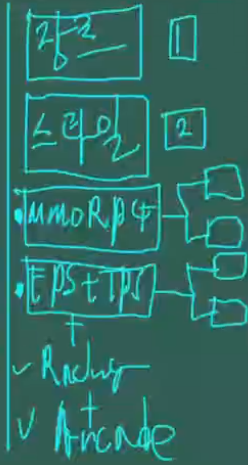 장르 1
스타일 2
• MMORPG
• FPS + TPS
+
✓ Racing
+
✓ Arcade